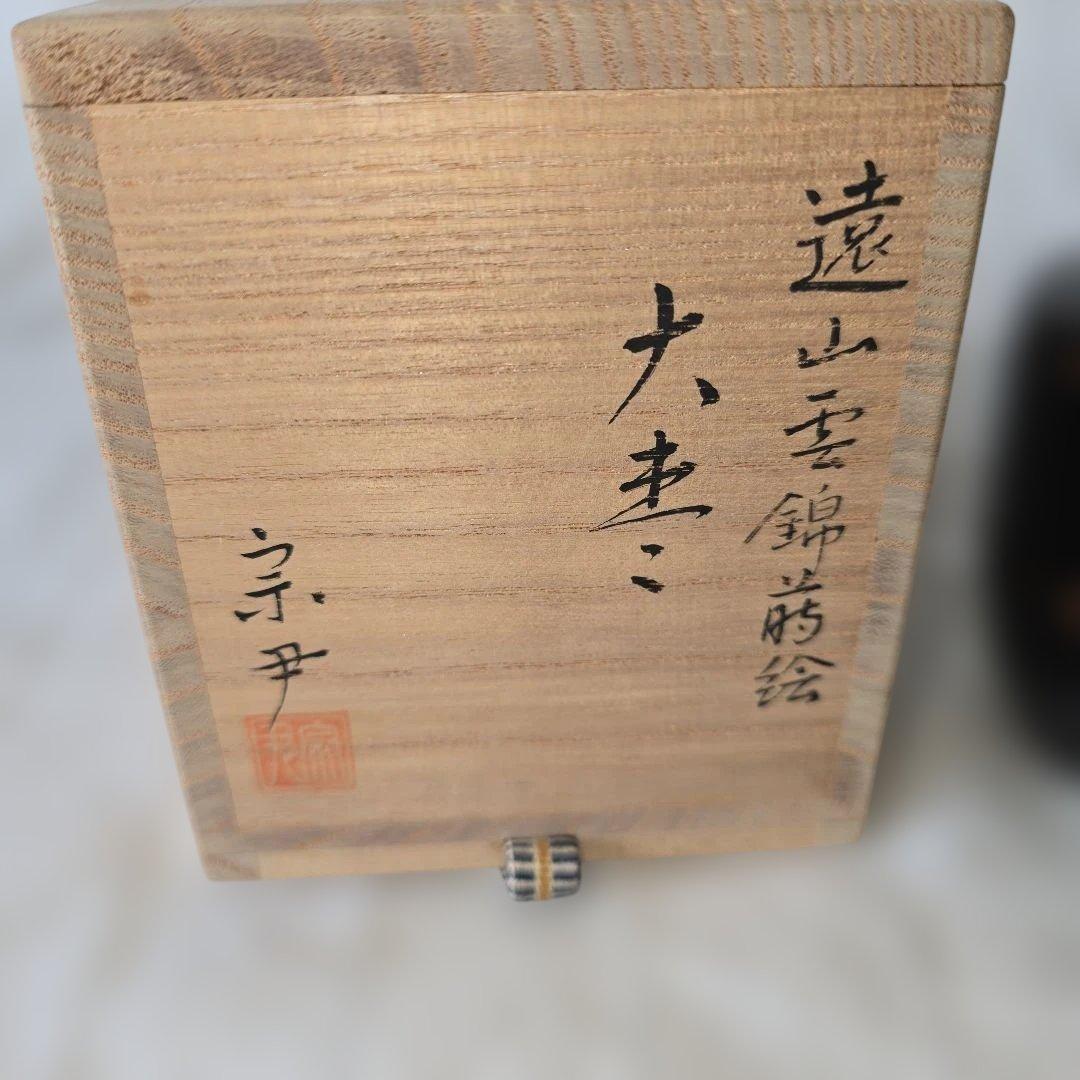 遠山雲錦蒔絵
大枣
宗尹